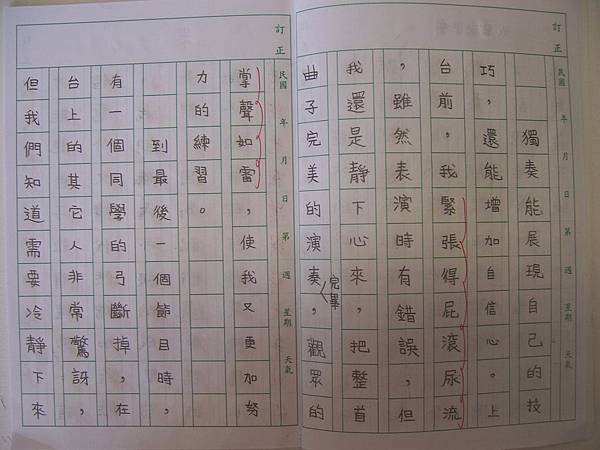 訂正
民國 年 月 日 第 週 星期 天氣
獨奏能展現自己的技
巧，還能增加自信心。上
台前，我緊張得屁滾尿流
，雖然表演時有錯誤，但
我還是靜下心來，把整首
曲子完美的演奏完畢，觀眾的
訂正
民國 年 月 日 第 週 星期 天氣
掌聲如雷，使我又更加努
力的練習。
到最後一個節目時，
有一個同學的弓斷掉，在
台上的其它人非常驚訝，
但我們知道需要冷靜下來